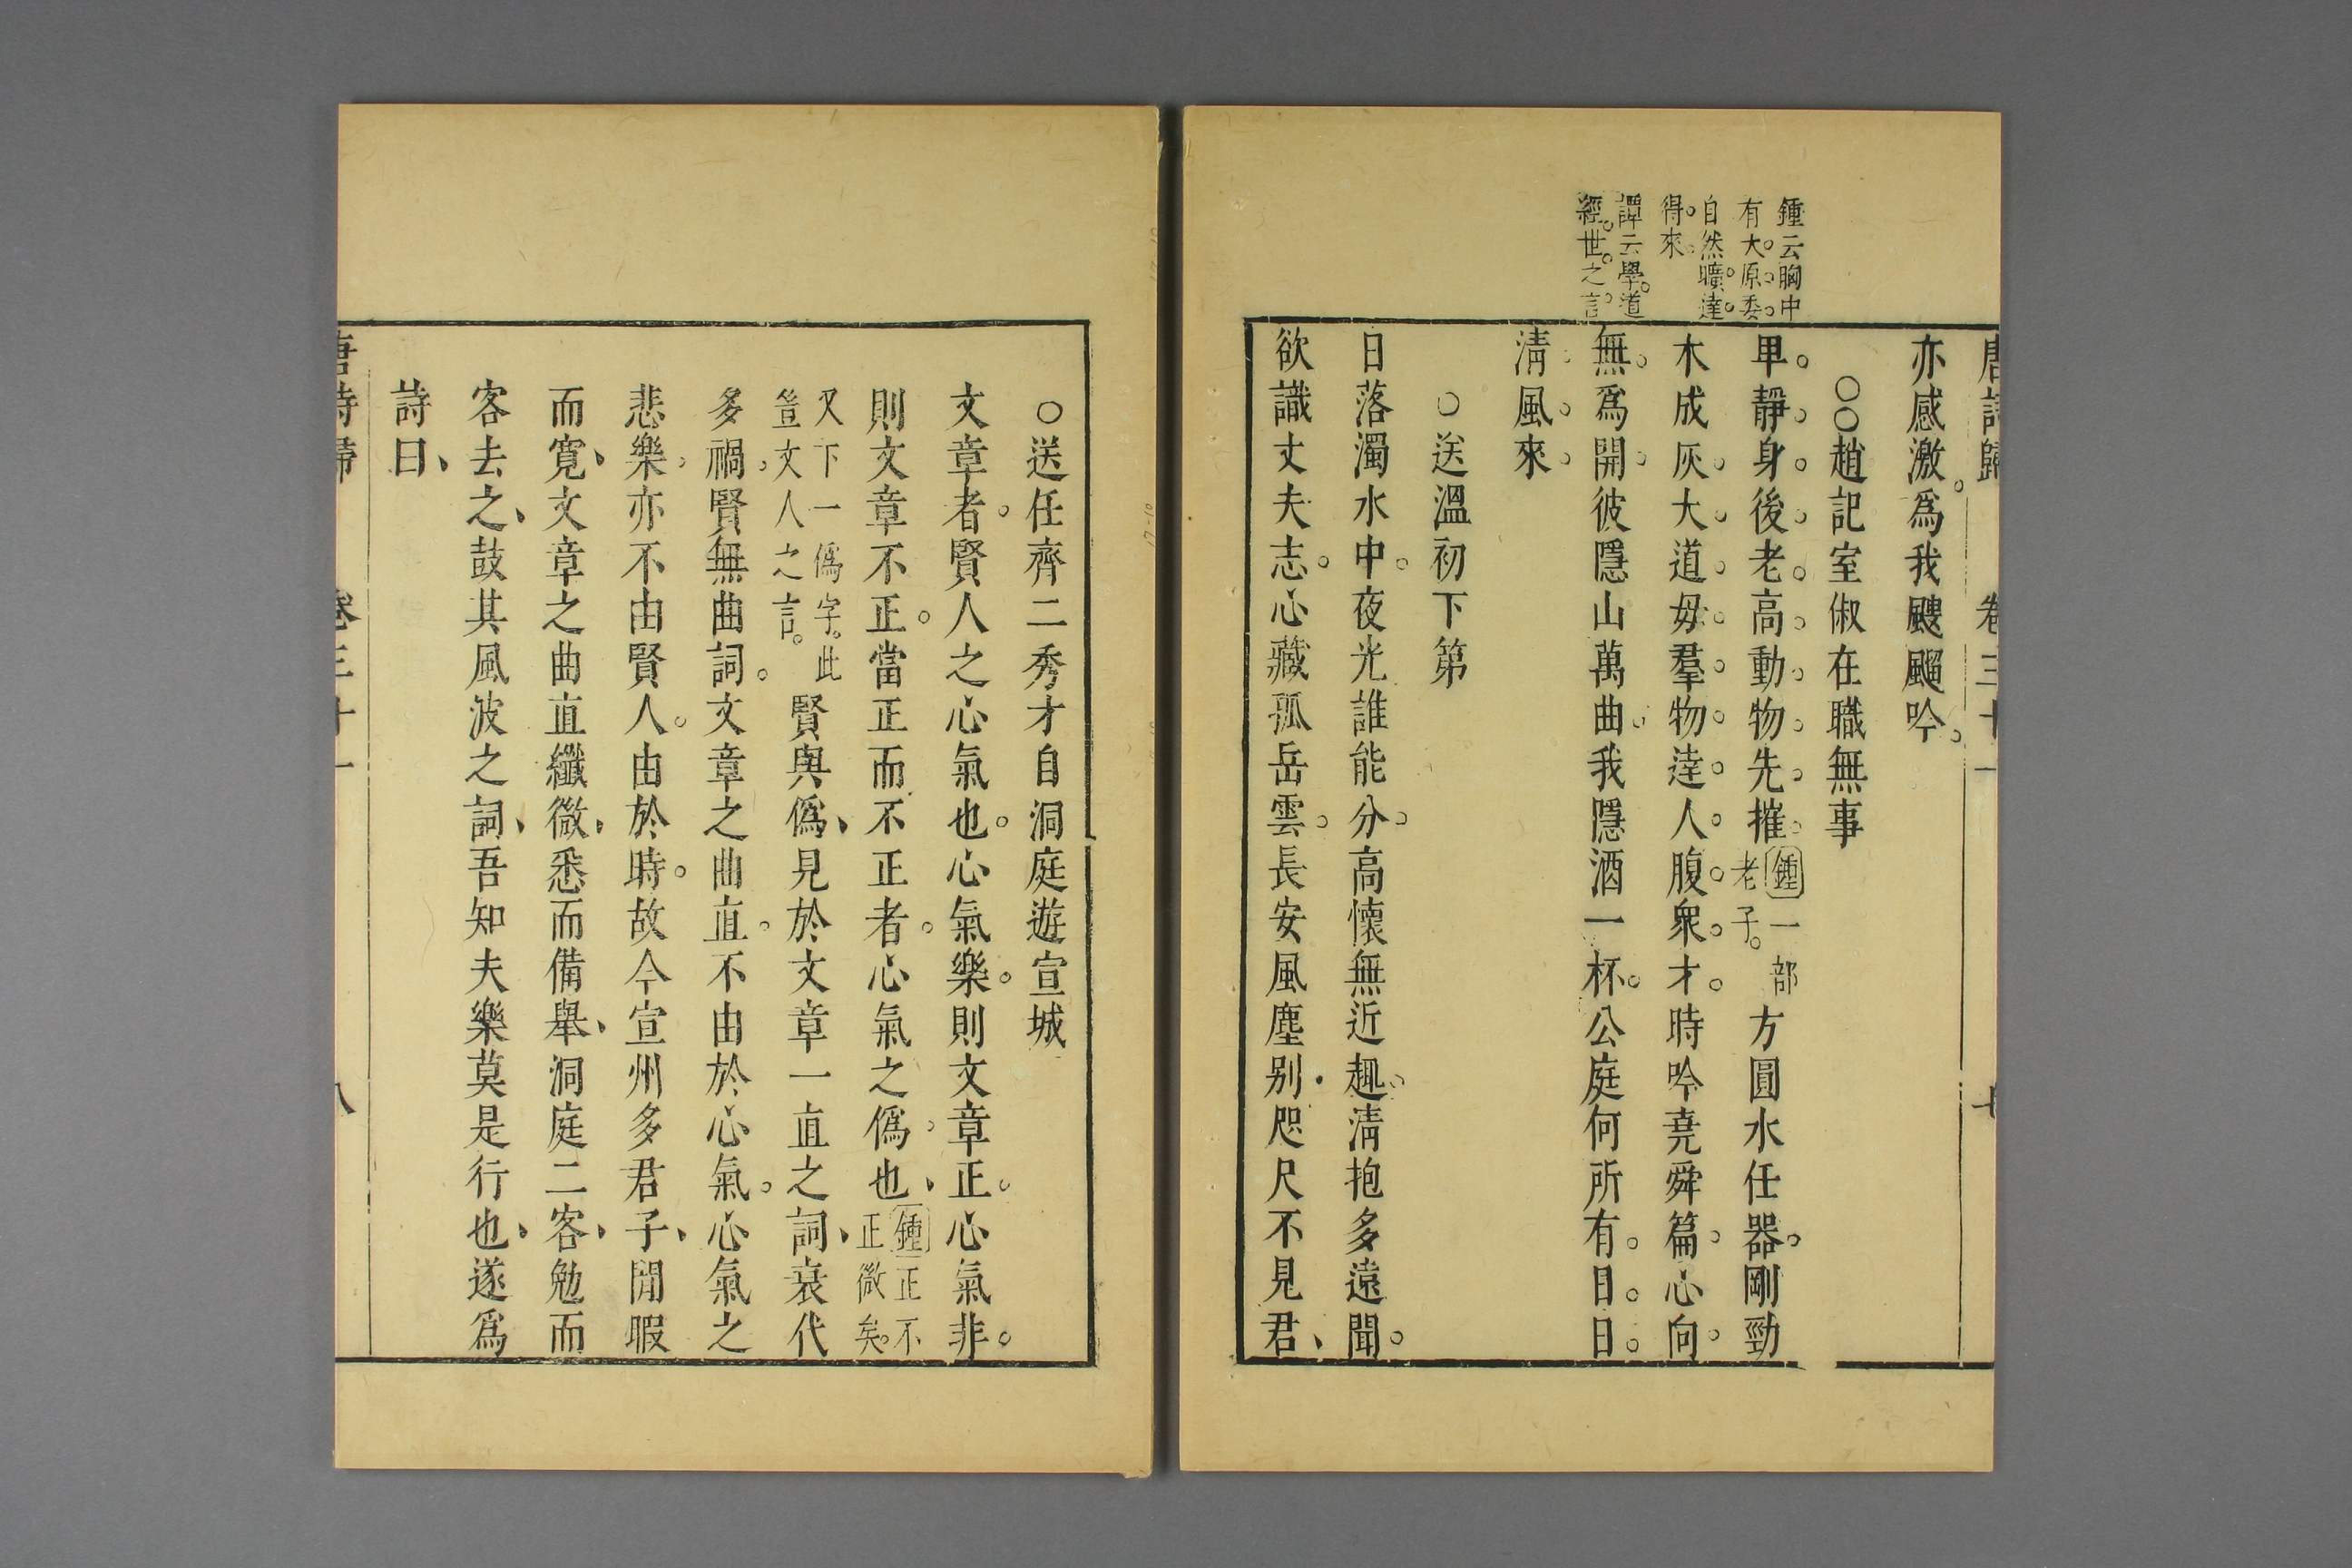 唐詩歸 卷三十一 七
亦感激爲我颼飀吟
○○趙記室俶在職無事
卑靜身後老高動物先摧鍾一部老子方圓水任器剛勁
木成灰大道毋羣物達人腹衆才時吟堯舜篇心向
無爲開彼隱山萬曲我隱酒一杯公庭何所有日日
清風來
鍾云胸中
有大原委
自然曠達
得來
譚云學道
經世之言
○送溫初下第
日落濁水中夜光誰能分高懷無近趣清抱多遠聞
欲識丈夫志心藏孤岳雲長安風塵別咫尺不見君
○送任齊二秀才自洞庭遊宣城
文章者賢人之心氣也心氣樂則文章正心氣非
則文章不正當正而不正者心氣之僞也鍾正不正微矣
又下一僞字此豈文人之言賢與僞見於文章一直之詞衰代
多禍賢無曲詞文章之曲直不由於心氣心氣之
悲樂亦不由賢人由於時故今宣州多君子閒暇
而寬文章之曲直纖微悉而備舉洞庭二客勉而
客去之鼓其風波之詞吾知夫樂莫是行也遂爲
詩曰
唐詩歸 卷三十一 八